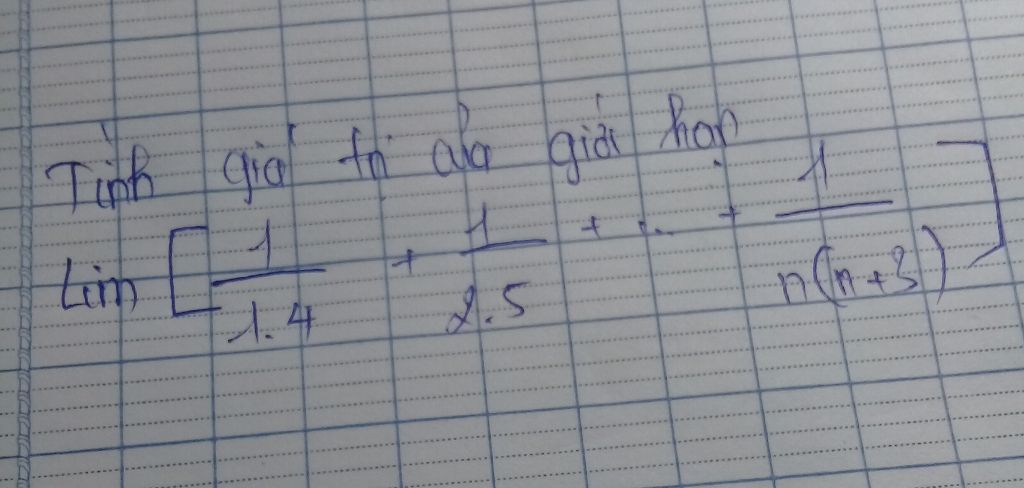 Tính giá trị của giới hạn
Lim [ 1/1.4 + 1/2.5 + ... + 1/n(n+3) ]